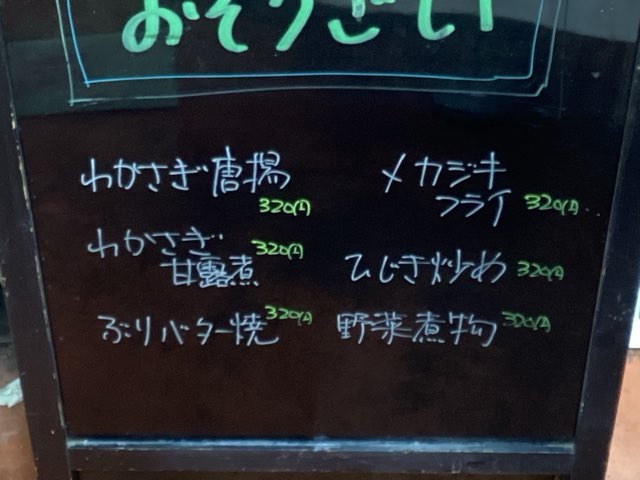 おそうざい
わかさぎ唐揚
320円
わかさぎ
甘露煮
320円
ぶりバター焼
320円
メカジキ
フライ
320円
ひじき炒め
320円
野菜煮物
320円